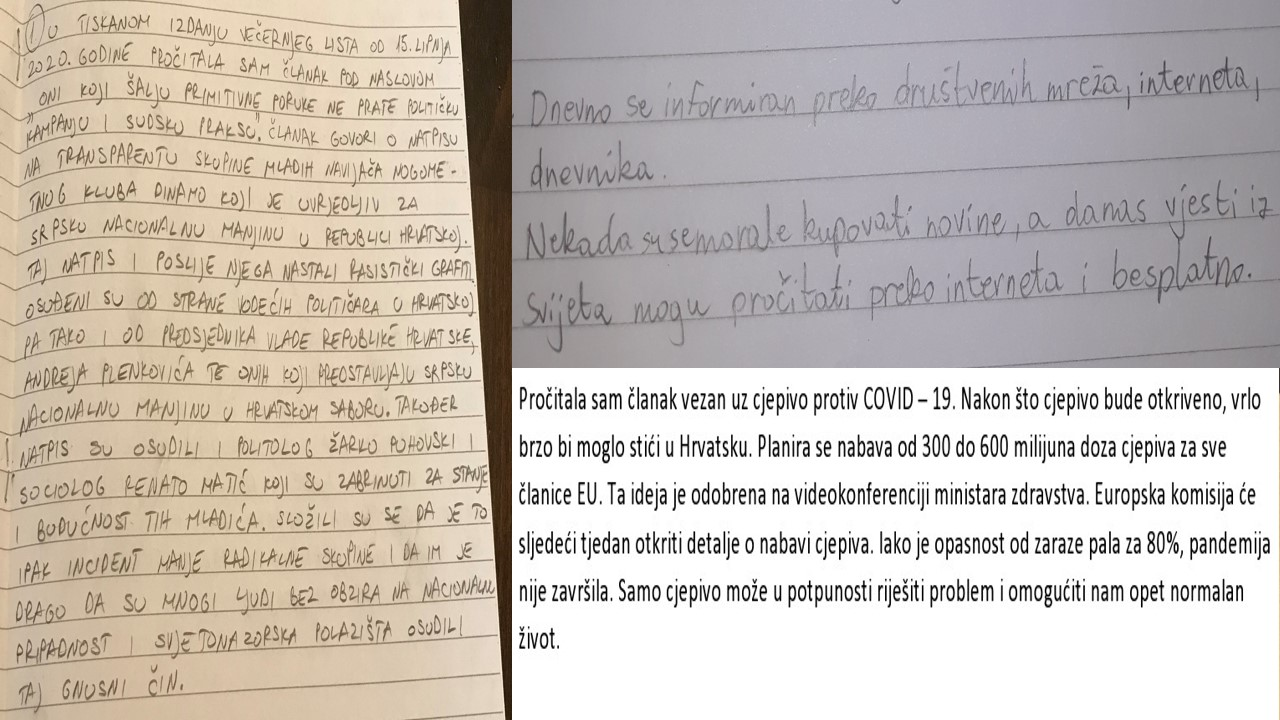 ① U TISKANOM IZDANJU VEČERNJEG LISTA OD 15. LIPNJA
2020. GODINE PROČITALA SAM ČLANAK POD NASLOVOM
„ONI KOJI ŠALJU PRIMITIVNE PORUKE NE PRATE POLITIČKU
KAMPANJU I SUDSKU PRAKSU“. ČLANAK GOVORI O NATPISU
NA TRANSPARENTU SKUPINE MLADIH NAVIJAČA NOGOME-
TNOG KLUBA DINAMO KOJI JE UVRJEDLJIV ZA
SRPSKU NACIONALNU MANJINU U REPUBLICI HRVATSKOJ.
TAJ NATPIS I POSLIJE NJEGA NASTALI RASISTIČKI GRAFITI
OSUĐENI SU OD STRANE VODEĆIH POLITIČARA U HRVATSKOJ
PA TAKO I OD PREDSJEDNIKA VLADE REPUBLIKE HRVATSKE,
ANDREJA PLENKOVIĆA TE ONIH KOJI PREDSTAVLJAJU SRPSKU
NACIONALNU MANJINU U HRVATSKOM SABORU. TAKOĐER
NATPIS SU OSUDILI I POLITOLOG ŽARKO PUHOVSKI I
SOCIOLOG RENATO MATIĆ KOJI SU ZABRINUTI ZA STANJE
I BUDUĆNOST TIH MLADIĆA. SLOŽILI SU SE DA JE TO
IPAK INCIDENT MANJE RADIKALNE SKUPINE I DA IM JE
DRAGO DA SU MNOGI LJUDI BEZ OBZIRA NA NACIONALNU
PRIPADNOST I SVJETONAZORSKA POLAZIŠTA OSUDILI
TAJ GNUSNI ČIN.
Dnevno se informiran preko društvenih mreža, interneta,
dnevnika.
Nekada su se morale kupovati novine, a danas vjesti iz
svijeta mogu pročitati preko interneta i besplatno.
Pročitala sam članak vezan uz cjepivo protiv COVID – 19. Nakon što cjepivo bude otkriveno, vrlo
brzo bi moglo stići u Hrvatsku. Planira se nabava od 300 do 600 milijuna doza cjepiva za sve
članice EU. Ta ideja je odobrena na videokonferenciji ministara zdravstva. Europska komisija će
sljedeći tjedan otkriti detalje o nabavi cjepiva. Iako je opasnost od zaraze pala za 80%, pandemija
nije završila. Samo cjepivo može u potpunosti riješiti problem i omogućiti nam opet normalan
život.